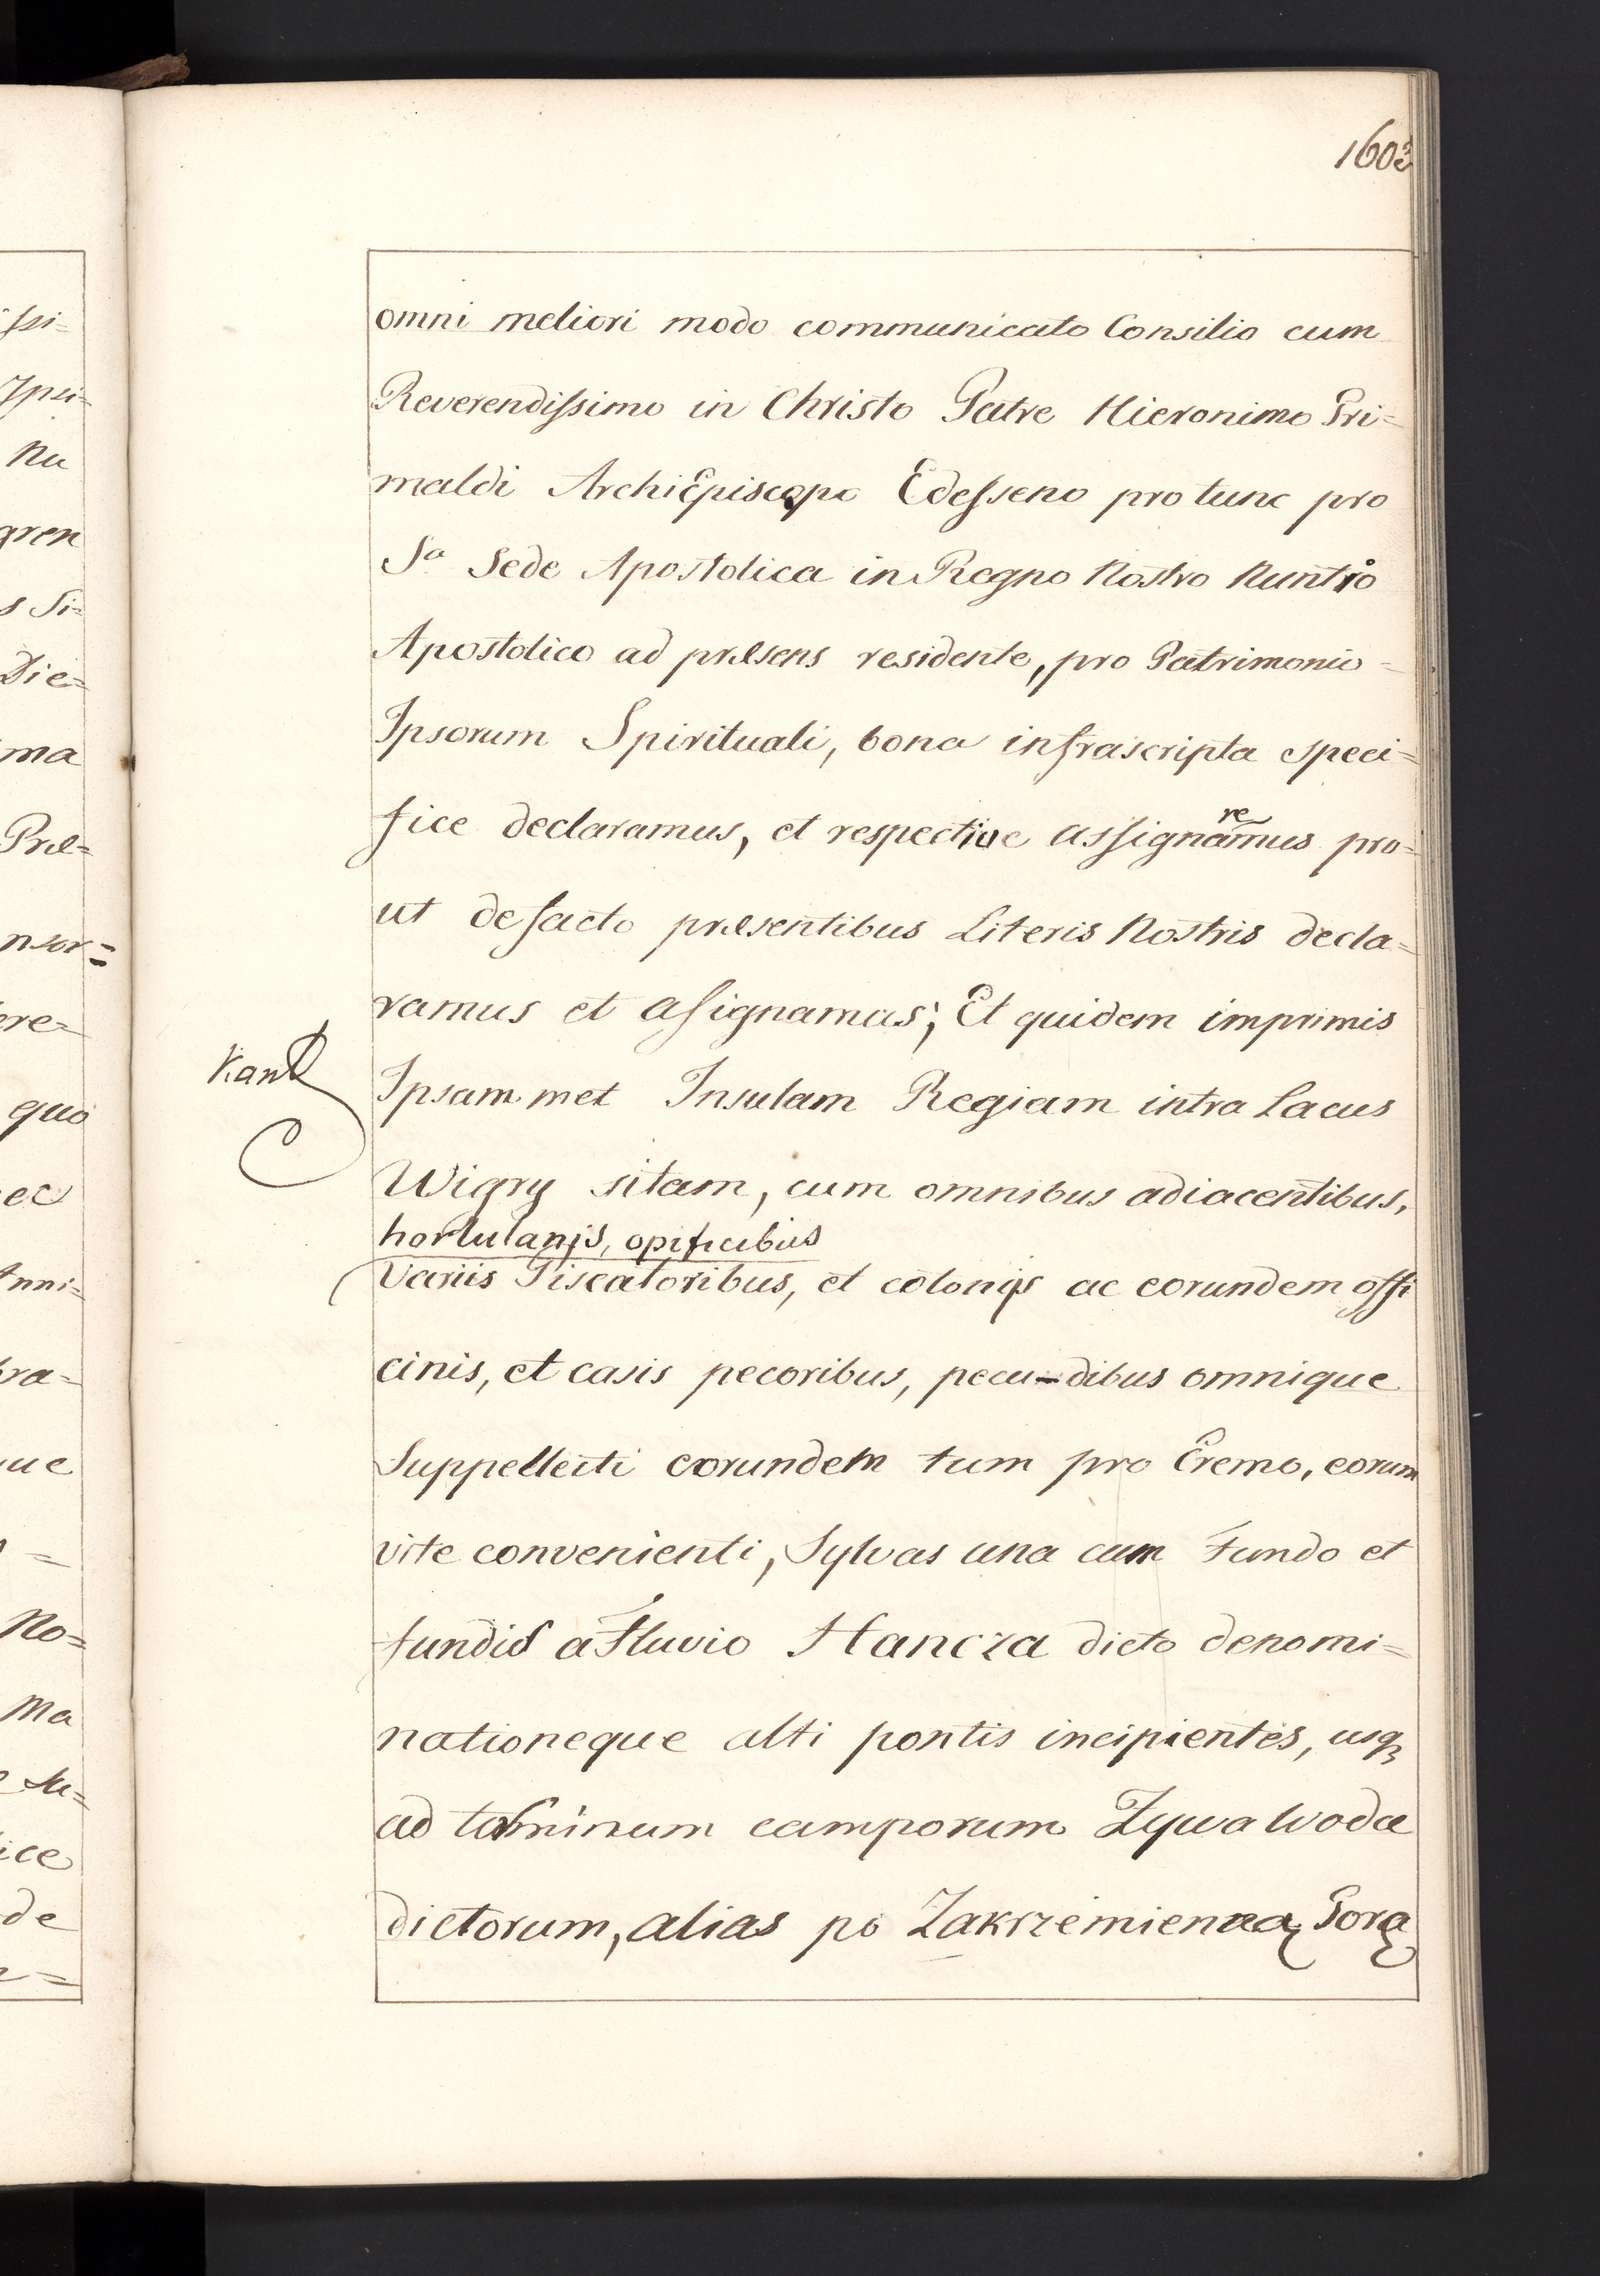 1603
omni meliori modo communicato Consilio cum
Reverendissimo in Christo Patre Hieronimo Gri=
maldi ArchiEpiscopo Edesseno pro tunc pro
Sa Sede Apostolica in Regno Nostro Nuntio
Apostolico ad præsens residente, pro Patrimonio =
Ipsorum Spirituali, bona infrascripta speci=
fice declaramus, et respective assignaremus pro=
ut defacto præsentibus Literis Nostris decla=
ramus et assignamus; Et quidem imprimis
Ipsam met Insulam Regiam intra Lacus
Wigry sitam, cum omnibus adiacentibus,
hortulanis, opificibus
variis Piscatoribus, et colonijs ac eorundem offi
cinis, et casis pecoribus, pecu-dibus omnique
Suppellecti eorundem tum pro Eremo, eorum
vite convenienti, Sylvas una cum Fundo et
fundis a Fluvio Hancza dicto denomi=
nationeque alti pontis incipientes, usq
ad terminum camporum Zywa Woda
dictorum, alias po Zakrzemienną Gorą
issi=
Ipsi=
Nu
gren
s Si=
Die=
ma
Præ=
nsor=
ere=
quo
ec
Anni=
bra=
ue
No=
Ma
ice
de